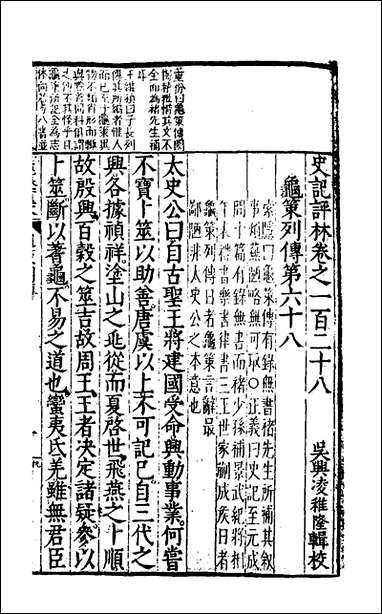 史記評林卷之一百二十八
吳興凌稚隆輯校
龜策列傳第六十八
索隱曰龜策傳有錄無書褚先生所補其叙
事煩蕪陋略無可取〇正義曰史記至元成
間十篇有錄無書而褚少孫補景武紀將相
年表禮書樂書律書三王世家蒯成侯日者
龜策列傳日者龜策言辭最
鄙陋非太史公之本意也
太史公曰自古聖王將建國受命興動事業何嘗
不寶卜筮以助善唐虞以上不可記已自三代之
興各據禎祥塗山之兆從而夏啓世飛燕之卜順
故殷興百穀之筮吉故周王王者決定諸疑參以
卜筮斷以蓍龜不易之道也蠻夷氐羌雖無君臣
董份曰龜策傳
全而為褚先生補
王維楨曰子長列